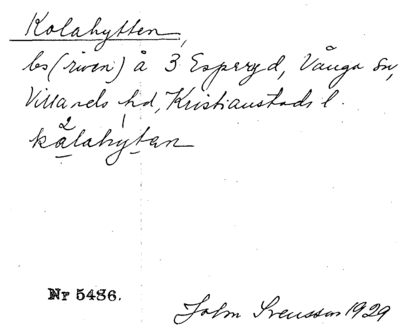 Kolahytten,
bs (riven) å 3 Esperyd, Vånga sn,
Villands hd, Kristianstads l.
kålahýtan
2
Nr 5486.
John Svensson 1929